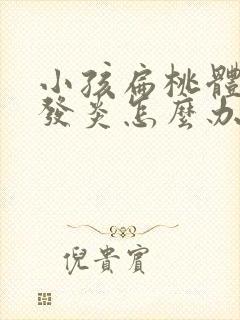 小孩扁桃體
發炎怎麼办
倪貴賓